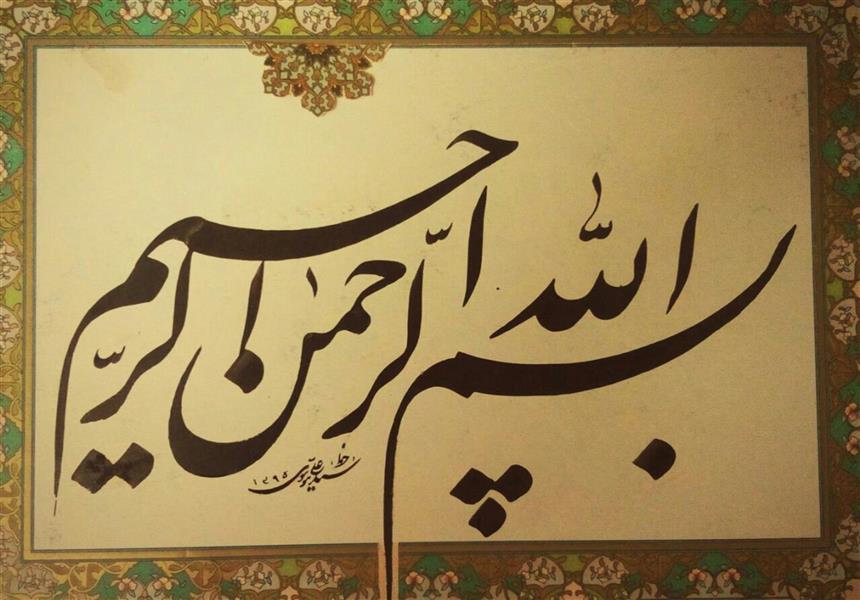 بسم الله الرحمن الرحیم
خط: سید علی موسوی ۱۳۹۵